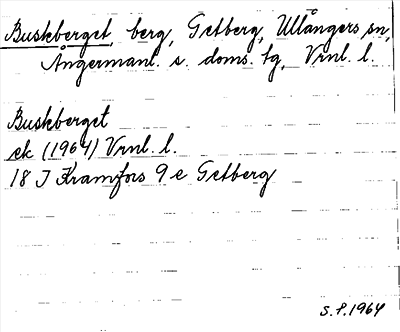 Buskberget, berg, Getberg, Ullångers sn,
Ångermanl. s. doms. tg, Vrnl. l.
Buskberget
ek (1964) Vrnl. l.
18 J Kramfors 9 e Getberg
S.P. 1964